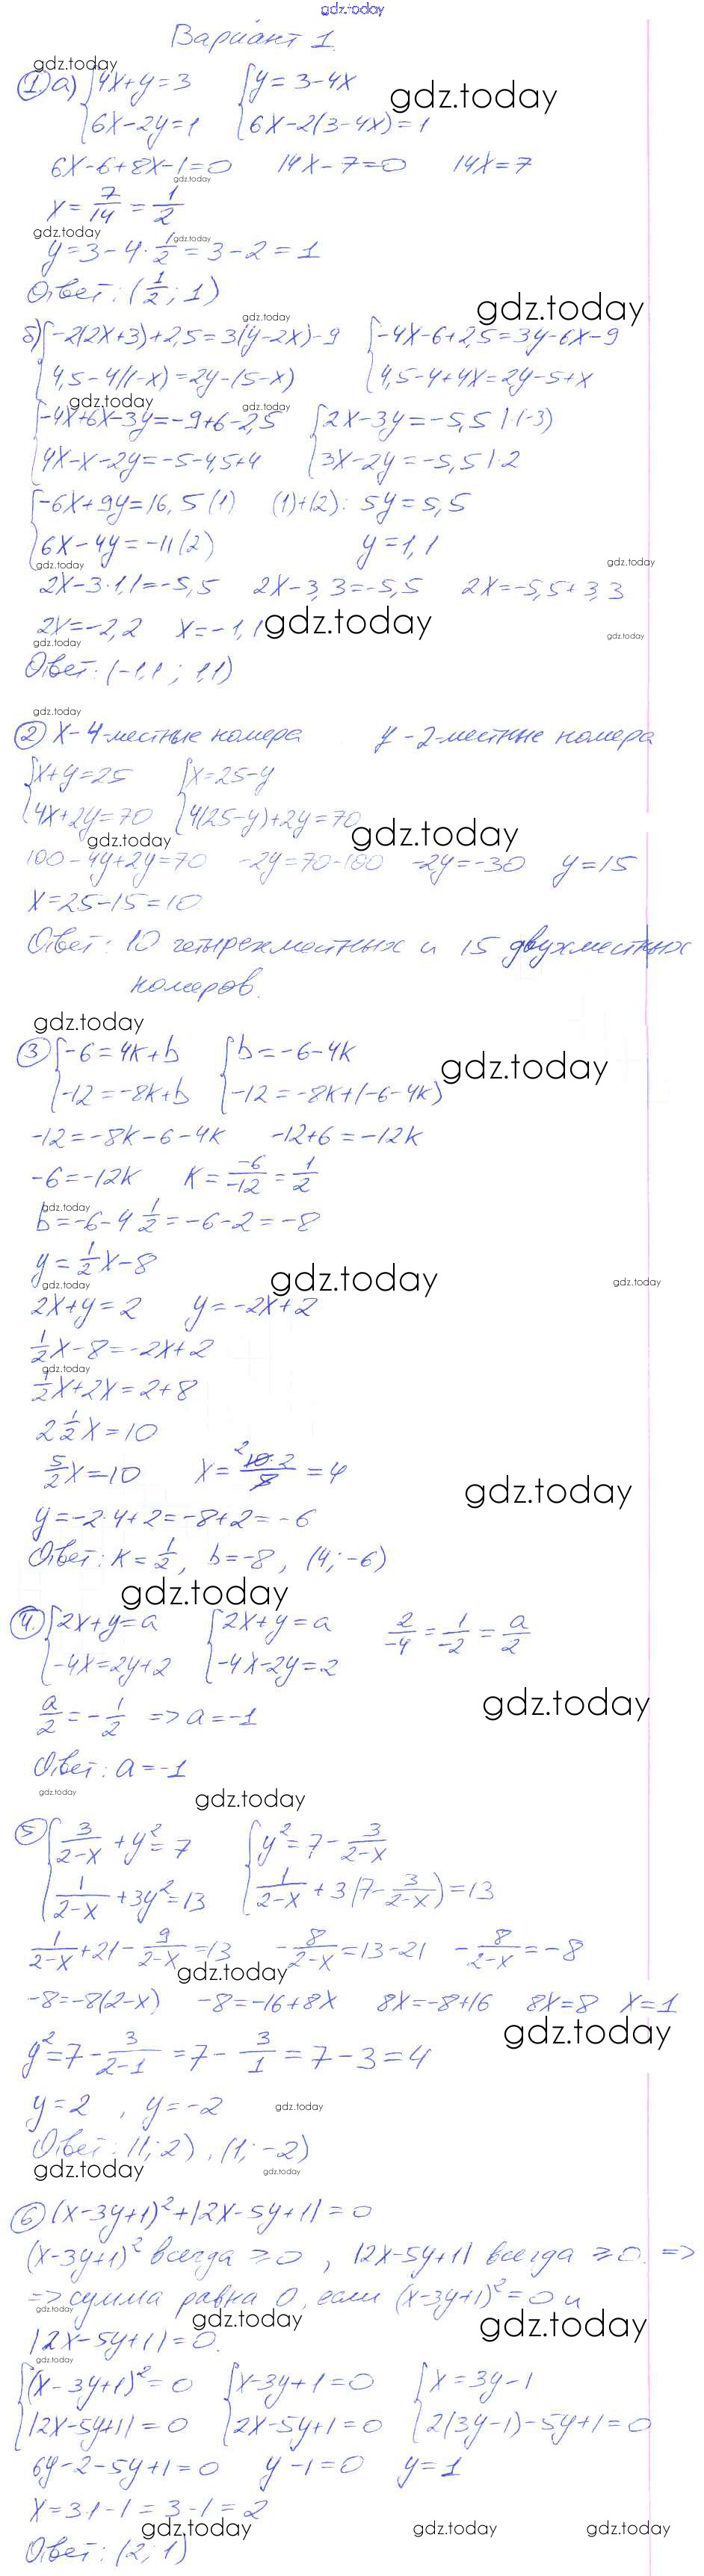 gdz.today
Вариант 1.
gdz.today
① а) {4x+y=3 {y=3-4x gdz.today
{6x-2y=1 {6x-2(3-4x)=1
6x-6+8x-1=0 14x-7=0 14x=7
gdz.today
x=7/14=1/2
gdz.today gdz.today
y=3-4·1/2=3-2=1
Ответ: (1/2; 1)
gdz.today
gdz.today
б) {-2(2x+3)+2,5=3(y-2x)-9 {-4x-6+2,5=3y-6x-9
{4,5-4(1-x)=2y-(5-x) {4,5-4+4x=2y-5+x
gdz.today gdz.today
{-4x+6x-3y=-9+6-2,5 {2x-3y=-5,5 |·(-3)
{4x-x-2y=-5-4,5+4 {3x-2y=-5,5 |·2
{-6x+9y=16,5 (1) (1)+(2): 5y=5,5
{6x-4y=-11 (2) y=1,1
gdz.today gdz.today
2x-3·1,1=-5,5 2x-3,3=-5,5 2x=-5,5+3,3
2x=-2,2 x=-1,1 gdz.today
gdz.today gdz.today
Ответ: (-1,1; 1,1)
gdz.today
② x-4-местные номера y-2-местные номера
{x+y=25 {x=25-y
{4x+2y=70 {4(25-y)+2y=70
gdz.today gdz.today
100-4y+2y=70 -2y=70-100 -2y=-30 y=15
x=25-15=10.
Ответ: 10 четырехместных и 15 двухместных
номеров.
gdz.today
③ {-6=4k+b {b=-6-4k gdz.today
{-12=-8k+b {-12=-8k+(-6-4k)
-12=-8k-6-4k -12+6=-12k
-6=-12k k=-6/-12=1/2
gdz.today
b=-6-4 1/2=-6-2=-8
y=1/2x-8
gdz.today gdz.today gdz.today
2x+y=2 y=-2x+2
1/2x-8=-2x+2
gdz.today
1/2x+2x=2+8
2 1/2x=10
5/2x=10 x=10·2/5=4
gdz.today
y=-2·4+2=-8+2=-6
Ответ: k=1/2, b=-8, (4; -6)
gdz.today
④. {2x+y=a {2x+y=a 2/-4=1/-2=a/2
{-4x=2y+2 {-4x-2y=2
gdz.today
a/2=-1/2 => a=-1
Ответ: a=-1
gdz.today gdz.today
⑤ {3/2-x+y²=7 {y²=7-3/2-x
{1/2-x+3y²=13 {1/2-x+3(7-3/2-x)=13
1/2-x+21-9/2-x=13 -8/2-x=13-21 -8/2-x=-8
gdz.today
-8=-8(2-x) -8=-16+8x 8x=-8+16 8x=8 x=1
gdz.today
y²=7-3/2-1=7-3/1=7-3=4
y=2, y=-2 gdz.today
Ответ: (1; 2), (1; -2)
gdz.today gdz.today
⑥ (x-3y+1)²+|2x-5y+1|=0
(x-3y+1)² всегда ≥0, |2x-5y+1| всегда ≥0. =>
=> сумма равна 0, если (x-3y+1)²=0 и
gdz.today gdz.today gdz.today
|2x-5y+1|=0.
gdz.today
{(x-3y+1)²=0 {x-3y+1=0 {x=3y-1
{|2x-5y+1|=0 {2x-5y+1=0 {2(3y-1)-5y+1=0
6y-2-5y+1=0 y-1=0 y=1
x=3·1-1=3-1=2
gdz.today gdz.today gdz.today
Ответ: (2; 1)